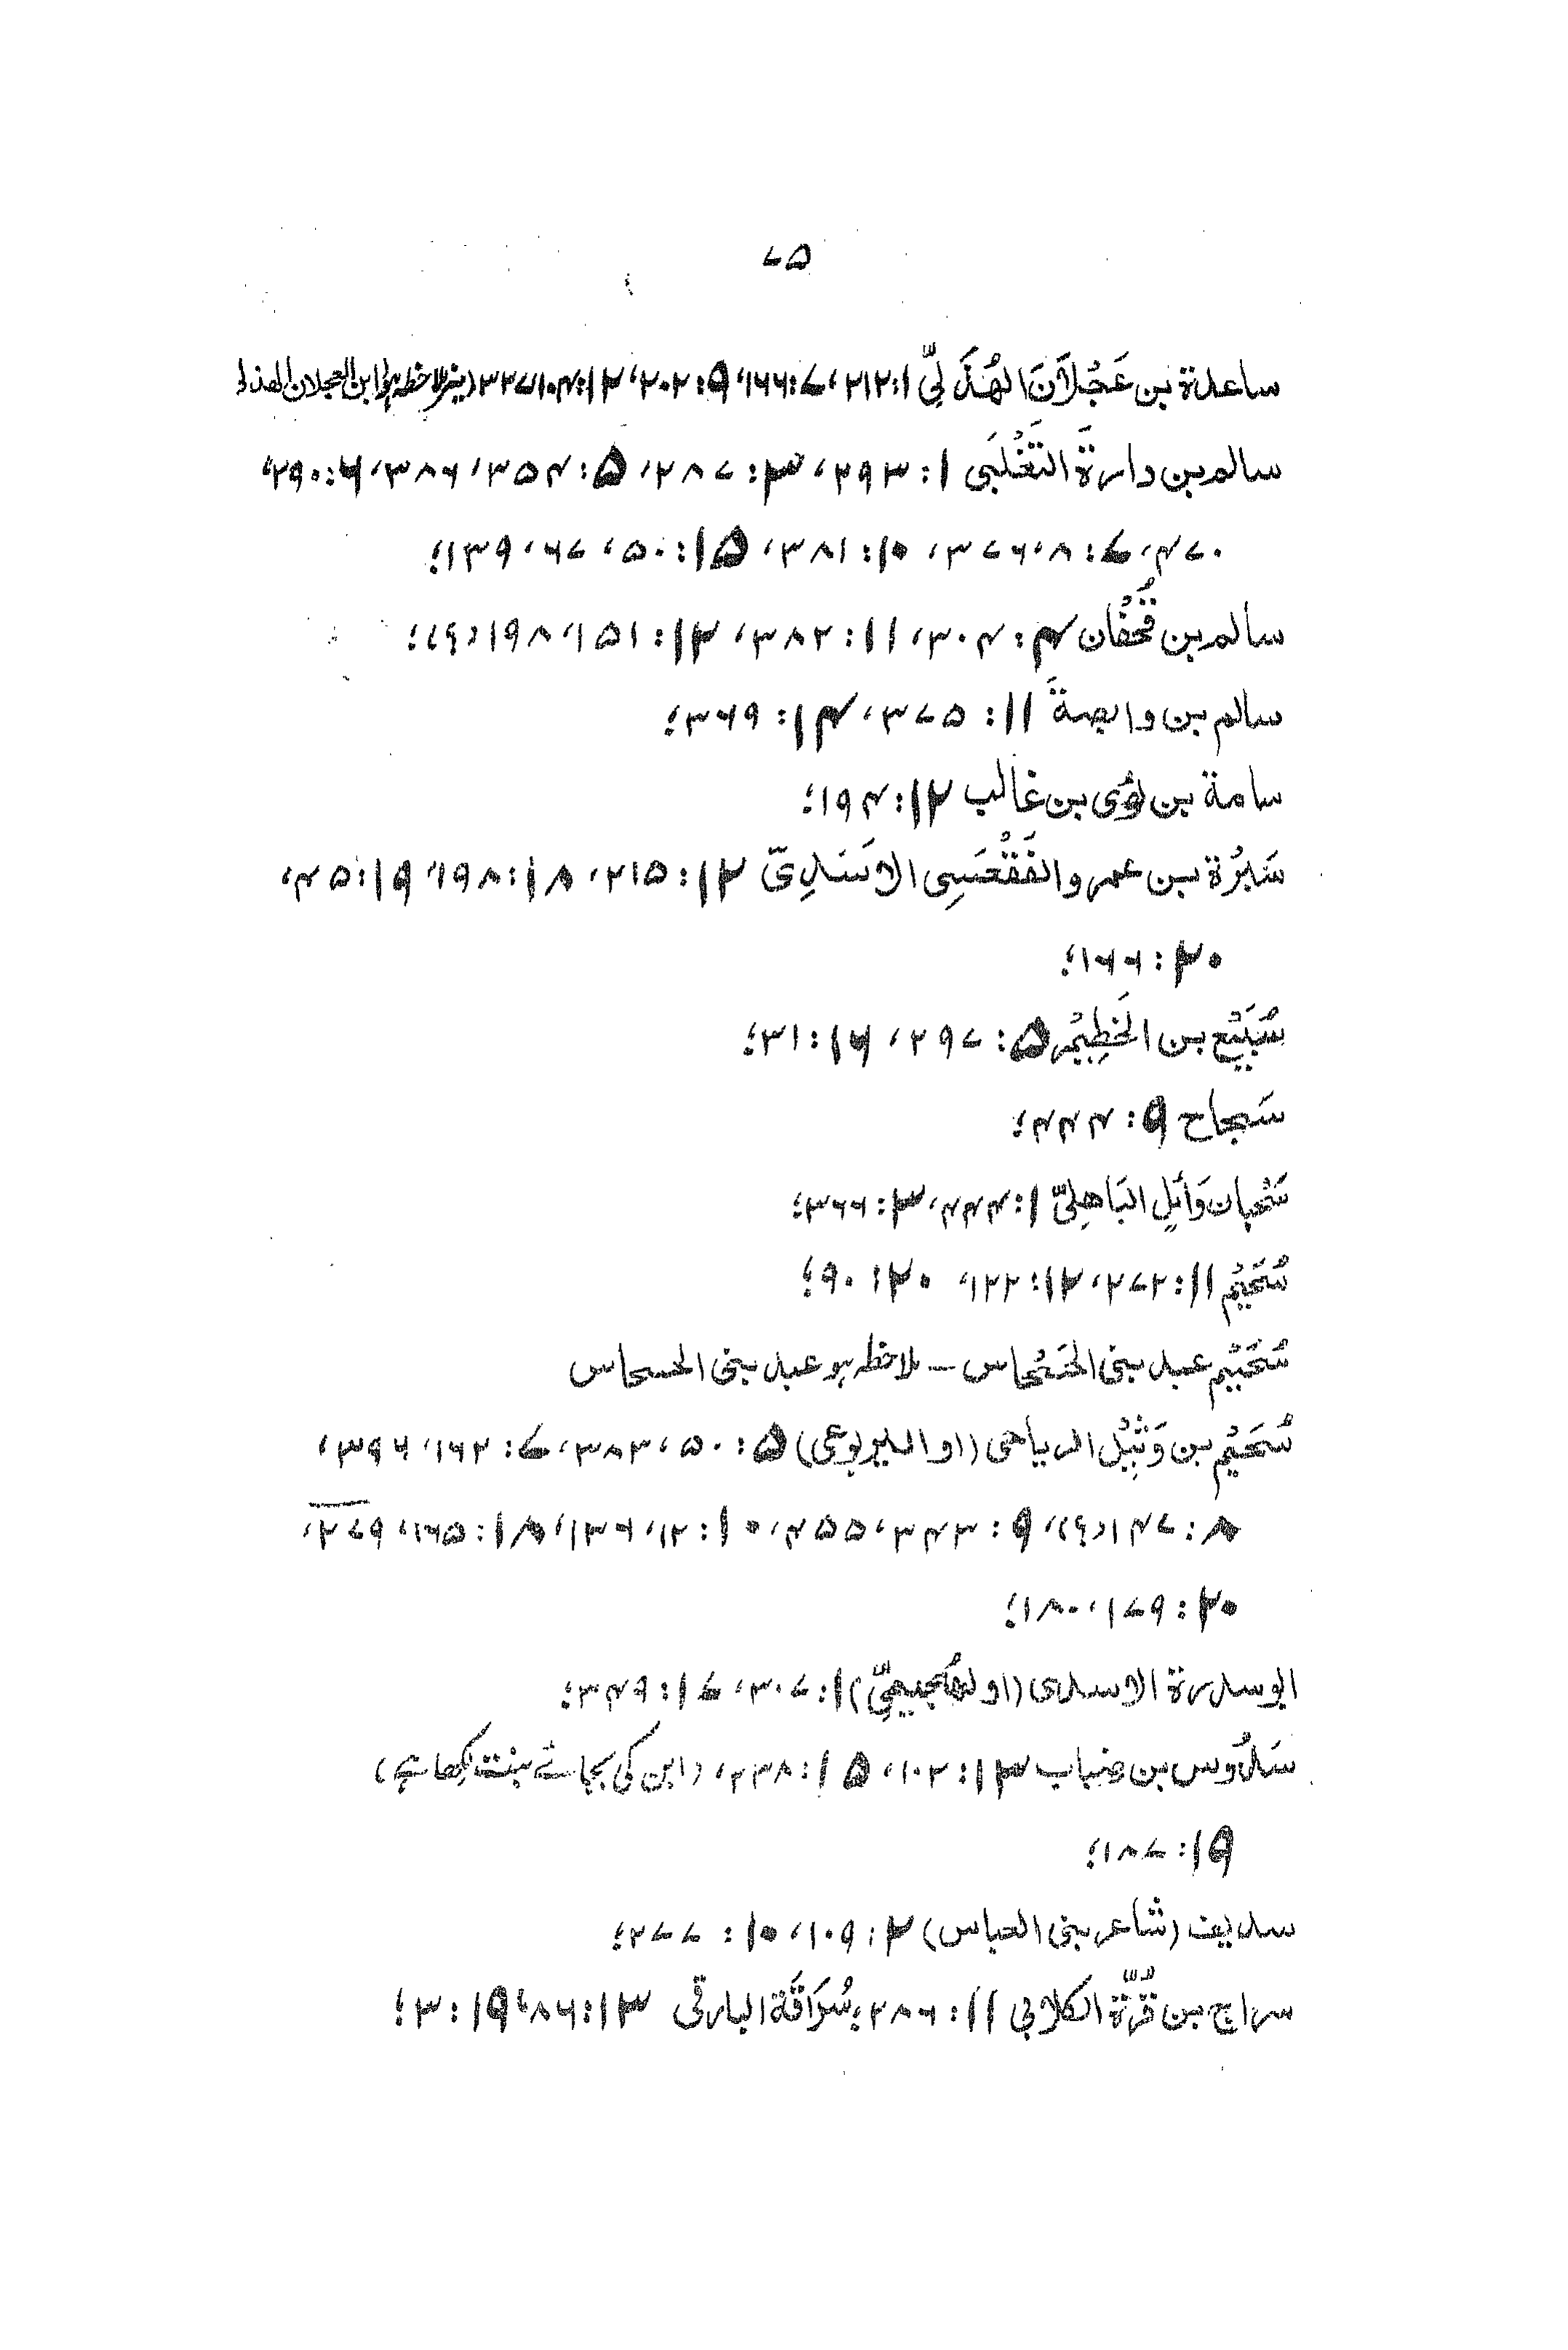 ۷۵
ساعدة بن عَجْلَانَ الهُذَلِيّ ۱: ۲۱۲، ۷: ۱۶۶، ۹: ۲۰۲، ۱۲: ۱۰۴، ۳۲۷ (نیز ملاحظہ ہو ابن العجلان الهذلی
سالم بن دارةَ التَغْلَبَی ۱: ۲۹۳، ۳: ۲۸۷، ۵: ۳۵۴، ۳۸۶، ۶: ۲۹۰،
۴۷۰، ۷: ۸، ۳۷۶، ۱۰: ۳۸۱، ۱۵: ۵۰، ۶۷، ۱۳۹؛
سالم بن قُحْفُان ۴: ۳۰۴، ۱۱: ۳۸۲، ۱۳: ۱۵۱، ۱۹۸ (؟)؛
سالم بن وابصةَ ۱۱: ۳۷۵، ۱۴: ۳۶۹؛
سامة بن لؤی بن غالب ۱۲: ۱۹۴؛
سَبْرُة بن عمرو الفَقْعَسِی الاَسَدِیّ ۱۲: ۲۱۵، ۱۸: ۱۹۸، ۱۹: ۴۵،
۲۰: ۱۶۶؛
سُبَيْع بن الخَطِيْم ۵: ۲۹۷، ۱۶: ۳۱؛
سَجاح ۹: ۴۴۴؛
سَحْبان وَائلٍ البَاهِلیّ ۱: ۴۴۴، ۳: ۳۶۶؛
سُحَيْم ۱۱: ۲۷۲، ۱۲: ۱۲۲، ۲۰: ۹۰؛
سُحَيْم عبد بنی الحَسْحاس – ملاحظہ ہو عبد بنی الحسحاس
سُحَيْم بن وَثِيْل الریاحی (او الیربوعی) ۵: ۵۰، ۳۸۳، ۷: ۱۶۲، ۳۹۶،
۸: ۱۴۷ (؟)، ۹: ۳۴۳، ۴۵۵، ۱۰: ۱۲، ۱۳۶، ۱۸: ۱۶۵، ۲۷۹،
۲۰: ۱۷۹، ۱۸۰؛
ابو سدرة الاسدی (او الهُجَیمِیّ) ۱: ۳۰۷، ۱۷: ۳۴۹؛
سَدُوس بن ضباب ۱۳: ۱۰۲، ۱۵: ۲۳۸، (ابن کی بجائے بنت لکھا ہے)
۱۹: ۱۸۷؛
سدیف (شاعر بنی العباس) ۲: ۱۰۹، ۱۰: ۲۷۷؛
سراج بن قُرّة الكلابی ۱۱: ۲۸۶؛ سُرَاقَة البارقی ۱۳: ۸۶، ۱۹: ۳؛